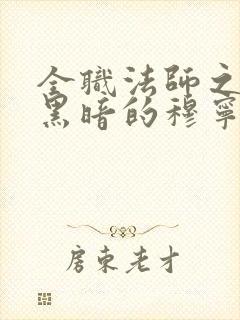 全職法師之
黑暗的穆寧
房東老才